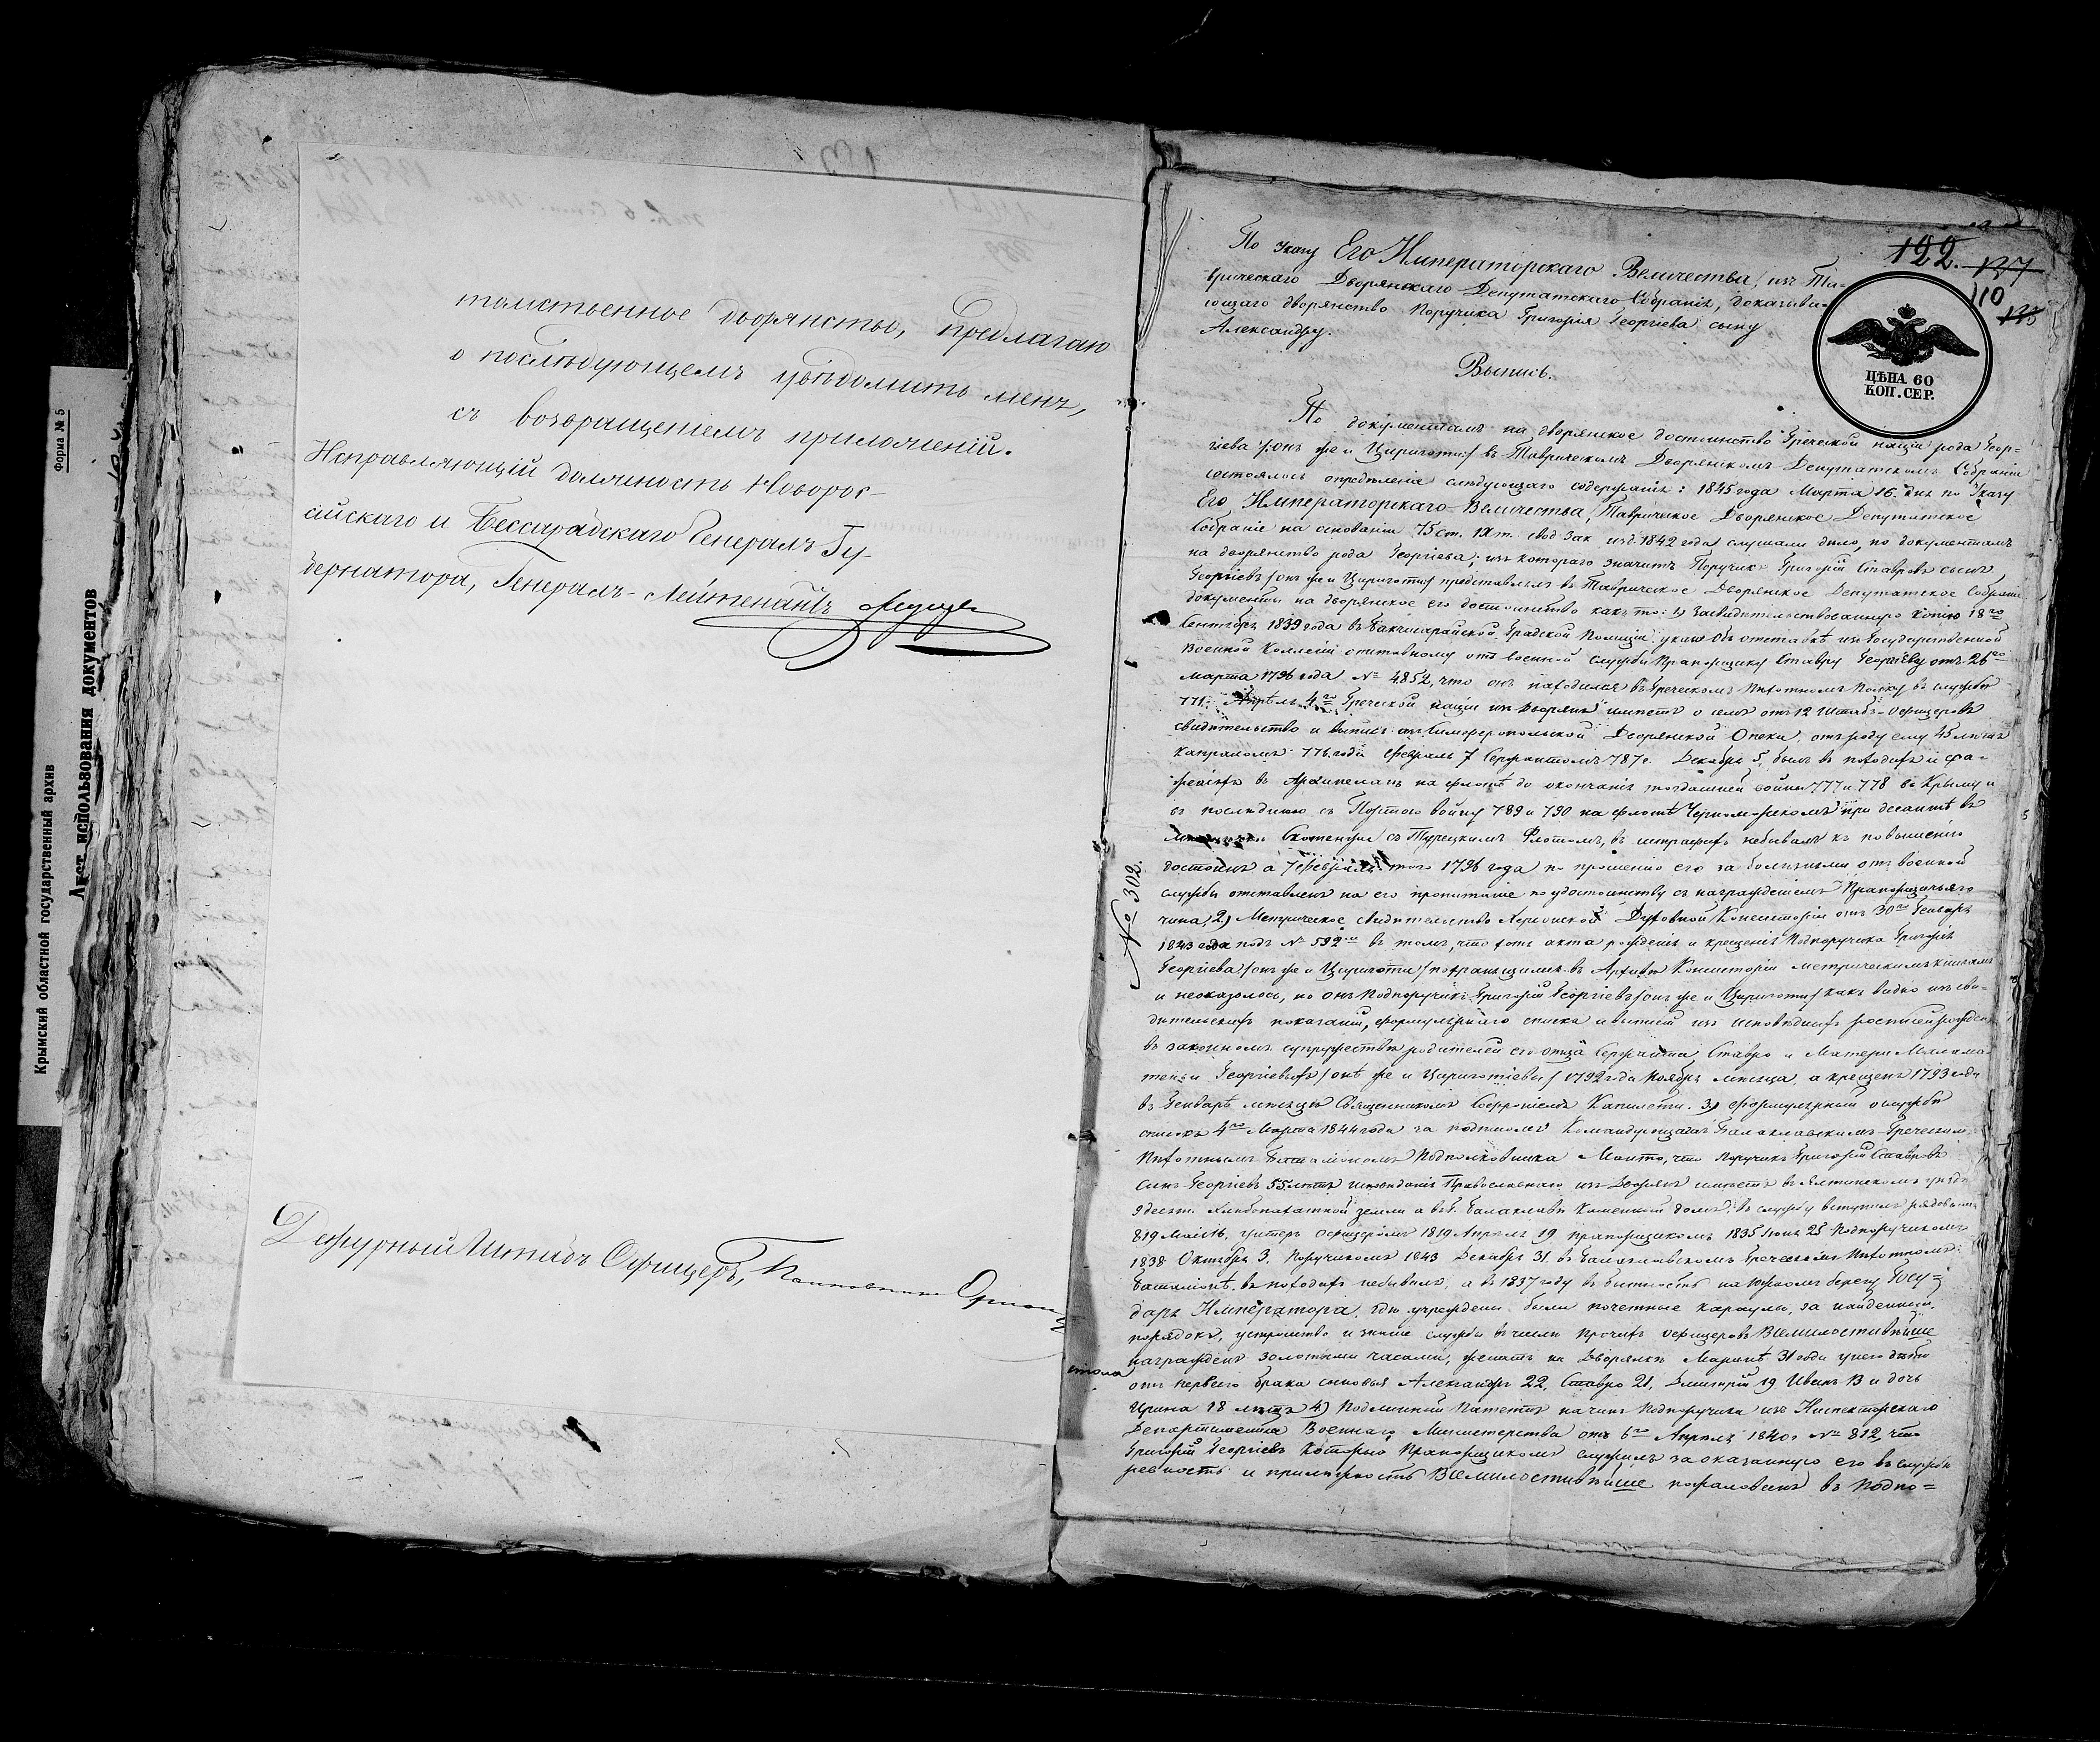 Форма № 5
Крымский областной государственный архив
Лист использования документов
томственное дворянство, предлагаю
о послѣдующемъ увѣдомить меня,
съ возвращеніемъ приложеній.
Исправляющій должность Новорос-
сійскаго и Бессарабскаго Генералъ Гу-
бернатора, Генералъ-Лейтенантъ
Дежурный Штабъ Офицеръ,
122. 137
110
ЦѢНА 60
КОП. СЕР.
По указу Его Императорскаго Величества, изъ Та-
врическаго Дворянскаго Депутатскаго Собранія, доказыва-
ющаго дворянство Поручика Григорія Георгіева сыну
Александру.
Выпись.
По документамъ на дворянское достоинство Греческой націи рода Геор-
гіева /онъ же и Цириготи/ въ Таврическомъ Дворянскомъ Депутатскомъ Собраніи
состоялось опредѣленіе слѣдующаго содержанія: 1845 года Марта 16. дня по Указу
Его Императорскаго Величества, Таврическое Дворянское Депутатское
Собраніе на основаніи 75 ст. IX т. свод. Зак. изд. 1842 года слушали дѣло, по документамъ
на дворянство рода Георгіева; изъ котораго значитъ Поручикъ Григорій Ставровъ сынъ
Георгіевъ /онъ же и Цириготи/ представилъ въ Таврическое Дворянское Депутатское Собраніе
документы на дворянское его достоинство какъ то: 1) Засвидѣтельствованную копію 18го
Сентября 1839 года въ Бакчисарайской Градской Полиціи указъ объ отставкѣ изъ Государственной
Военной Коллегіи отставному отъ военной службы Прапорщику Ставру Георгіеву отъ 26го
марта 1796 года № 4852, что онъ находился въ Греческомъ Пѣхотномъ Полку въ службѣ
771. Апрѣля 4го Греческой націи изъ Дворянъ имѣетъ о семъ отъ 12 Штабъ-Офицеровъ
свидѣтельство и выпись изъ Симферопольской Дворянской Опеки, отъ роду ему 45 лѣтъ
Капраломъ 776 года Февраля 7 Сержантомъ 787 г. Декабря 5, былъ въ походахъ и сра-
женіяхъ въ Архипелагѣ на флотѣ до окончанія тогдашней войны 777 и 778 въ Крыму и
въ послѣднюю съ Портою войну 789 и 790 на флотѣ Черноморскомъ при десантѣ въ
съ Турецкимъ Флотомъ, въ штрафахъ небывалъ къ повышенію
достоинъ а 7 Февраля того 1796 года по прошенію его за болѣзньми отъ военной
службы отставленъ на его пропитаніе по удостоинству съ награжденіемъ Прапорщичьяго
чина, 2) Метрическое свидѣтельство Херсонской Духовной Консисторіи отъ 30го Генваря
1843 года подъ № 592 въ томъ, что хотя акта рожденія и крещенія Подпоручика Григорія
Георгіева /онъ же и Цириготи/ по хранящимся въ Архивѣ Консисторіи метрическимъ книгамъ
и неоказалось, но онъ Подпоручикъ Григорій Георгіевъ /онъ же и Цириготи/ какъ видно изъ сви-
дѣтельскихъ показаній, формулярнаго списка и выписи изъ исповѣдныхъ росписей рожденъ
въ законномъ супружествѣ родителей его отца Сержанта Ставро и Матери
Георгіевыхъ /онѣ же и Цириготіевы/ 1792 года Ноября мѣсяца, а крещенъ 1793 года
въ Генварѣ мѣсяцѣ Священникомъ Софроніемъ 3) Формулярный о службѣ
списокъ 4го Марта 1844 года за подписомъ Командующаго Балаклавскимъ Греческимъ
Пѣхотнымъ Баталіономъ Подполковника Манто, что Поручикъ Григорій Ставровъ
сынъ Георгіевъ 55 лѣтъ исповѣданія Православнаго изъ Дворянъ имѣетъ въ Ялтинскомъ уѣздѣ
9 десят. хлѣбопахатной земли а въ г. Балаклавѣ Каменный домъ; въ службу вступилъ рядовымъ
819 Мая 16, унтеръ офицеромъ 1819 Апрѣля 19 прапорщикомъ 1835 Іюня 25 Подпоручикомъ
1838 Октября 3. Поручикомъ 1843 Декабря 31. въ Балаклавскомъ Греческомъ Пѣхотномъ
Баталіонѣ, въ походахъ небывалъ, а въ 1837 году въ бытность на Южномъ берегу Госу-
даря Императора, гдѣ учреждены были почетные караулы, за найденный
порядокъ, устройство и знаніе службы въ числѣ прочихъ офицеровъ Всемилостивѣйше
награжденъ золотыми часами, женатъ на Дворянкѣ Маринѣ 31 года у него дѣти
отъ перваго брака сыновья Александръ 22, Ставро 21, Дмитрій 19 Иванъ 13 и дочь
Ирина 18 лѣтъ 4) Подлинный Патентъ на чинъ Подпоручика изъ Инспекторскаго
Департамента Военнаго Министерства отъ 6го Апрѣля 1840 г № 812, что
Григорій Георгіевъ который Прапорщикомъ служилъ за оказанную его въ службѣ
ревность и прилѣжность Всемилостивѣйше пожалованъ въ Подпо=
№ 302.